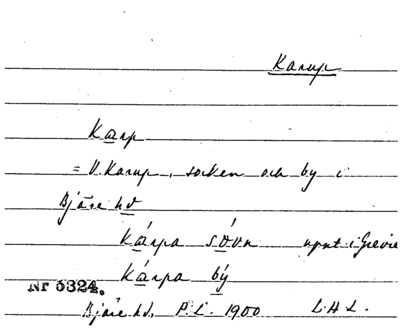 Karup
Karp
= V. Karup, socken och by i
Bjäre hd
Kárpa sóvn uppt. i Grevie
Kárpa bý
Nr 5324.
Bjäre hd. P.L. 1900 L.H.L.